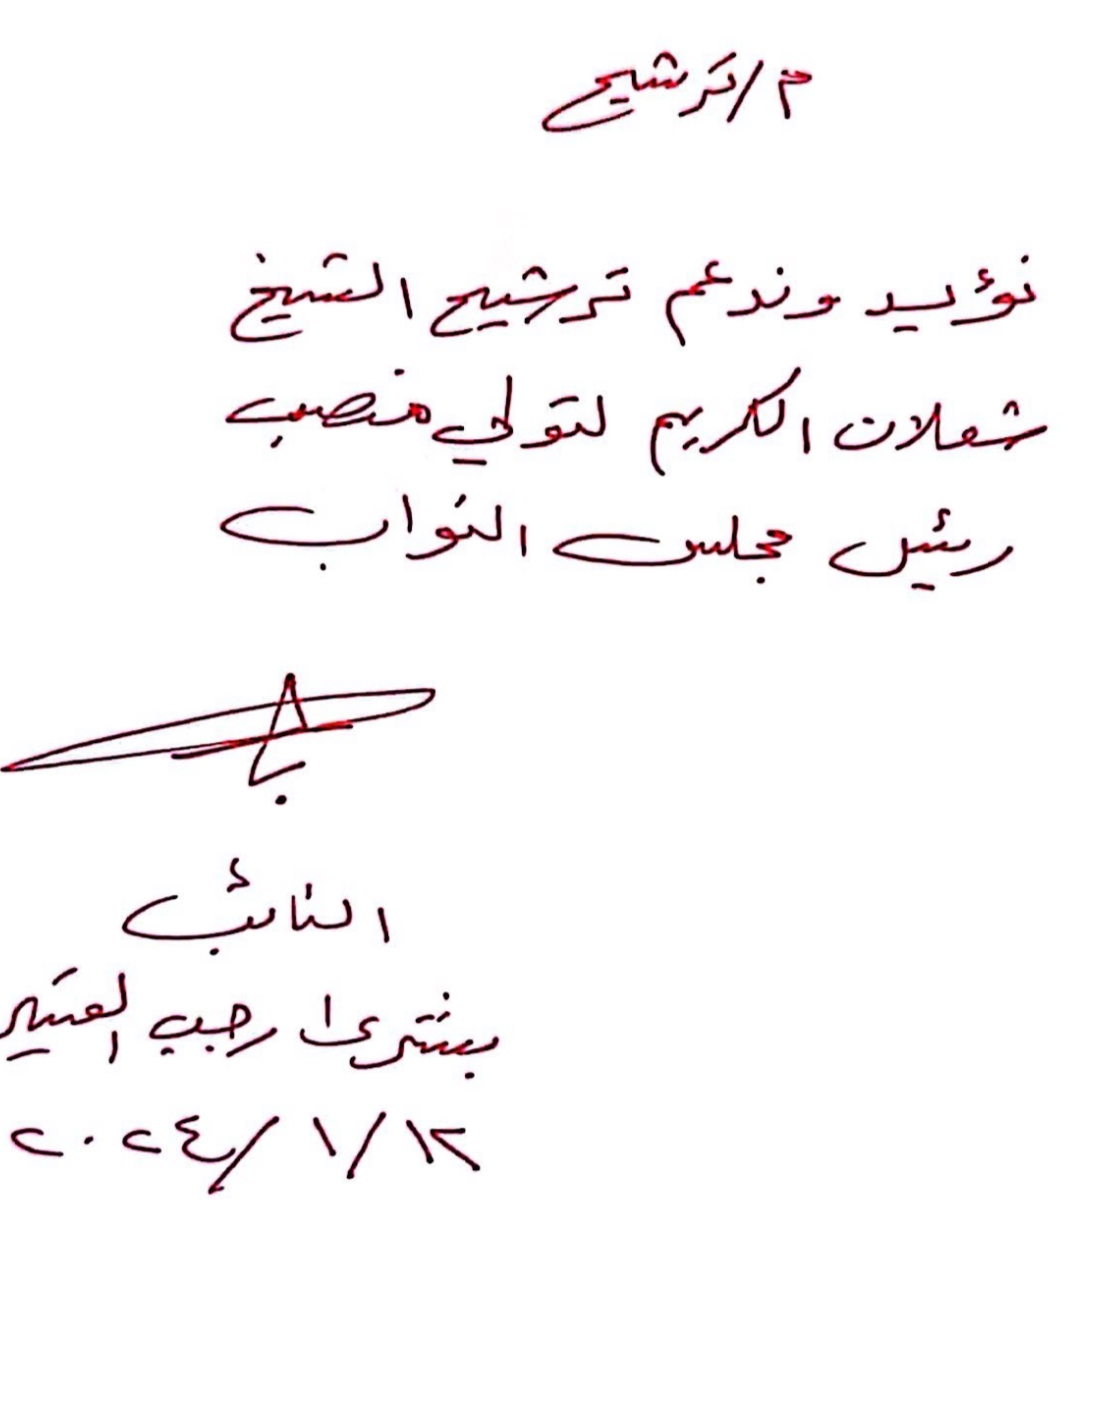 م/ترشيح
نؤيد وندعم ترشيح الشيخ
شعلان الكريم لتولي منصب
رئيس مجلس النواب
النائب
بشرى رجب
١٢/١/٢٠٢٤